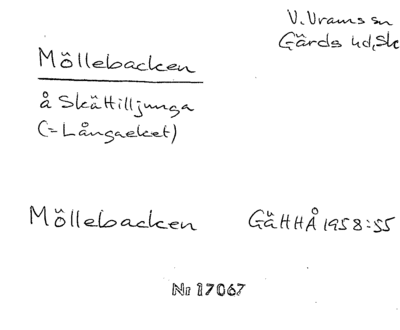 V. Vrams sn
Gärds hd, Sk
Möllebacken
å Skättilljunga
(= Långaeket)
Möllebacken GäHHÅ 1958:55
Nr 17067